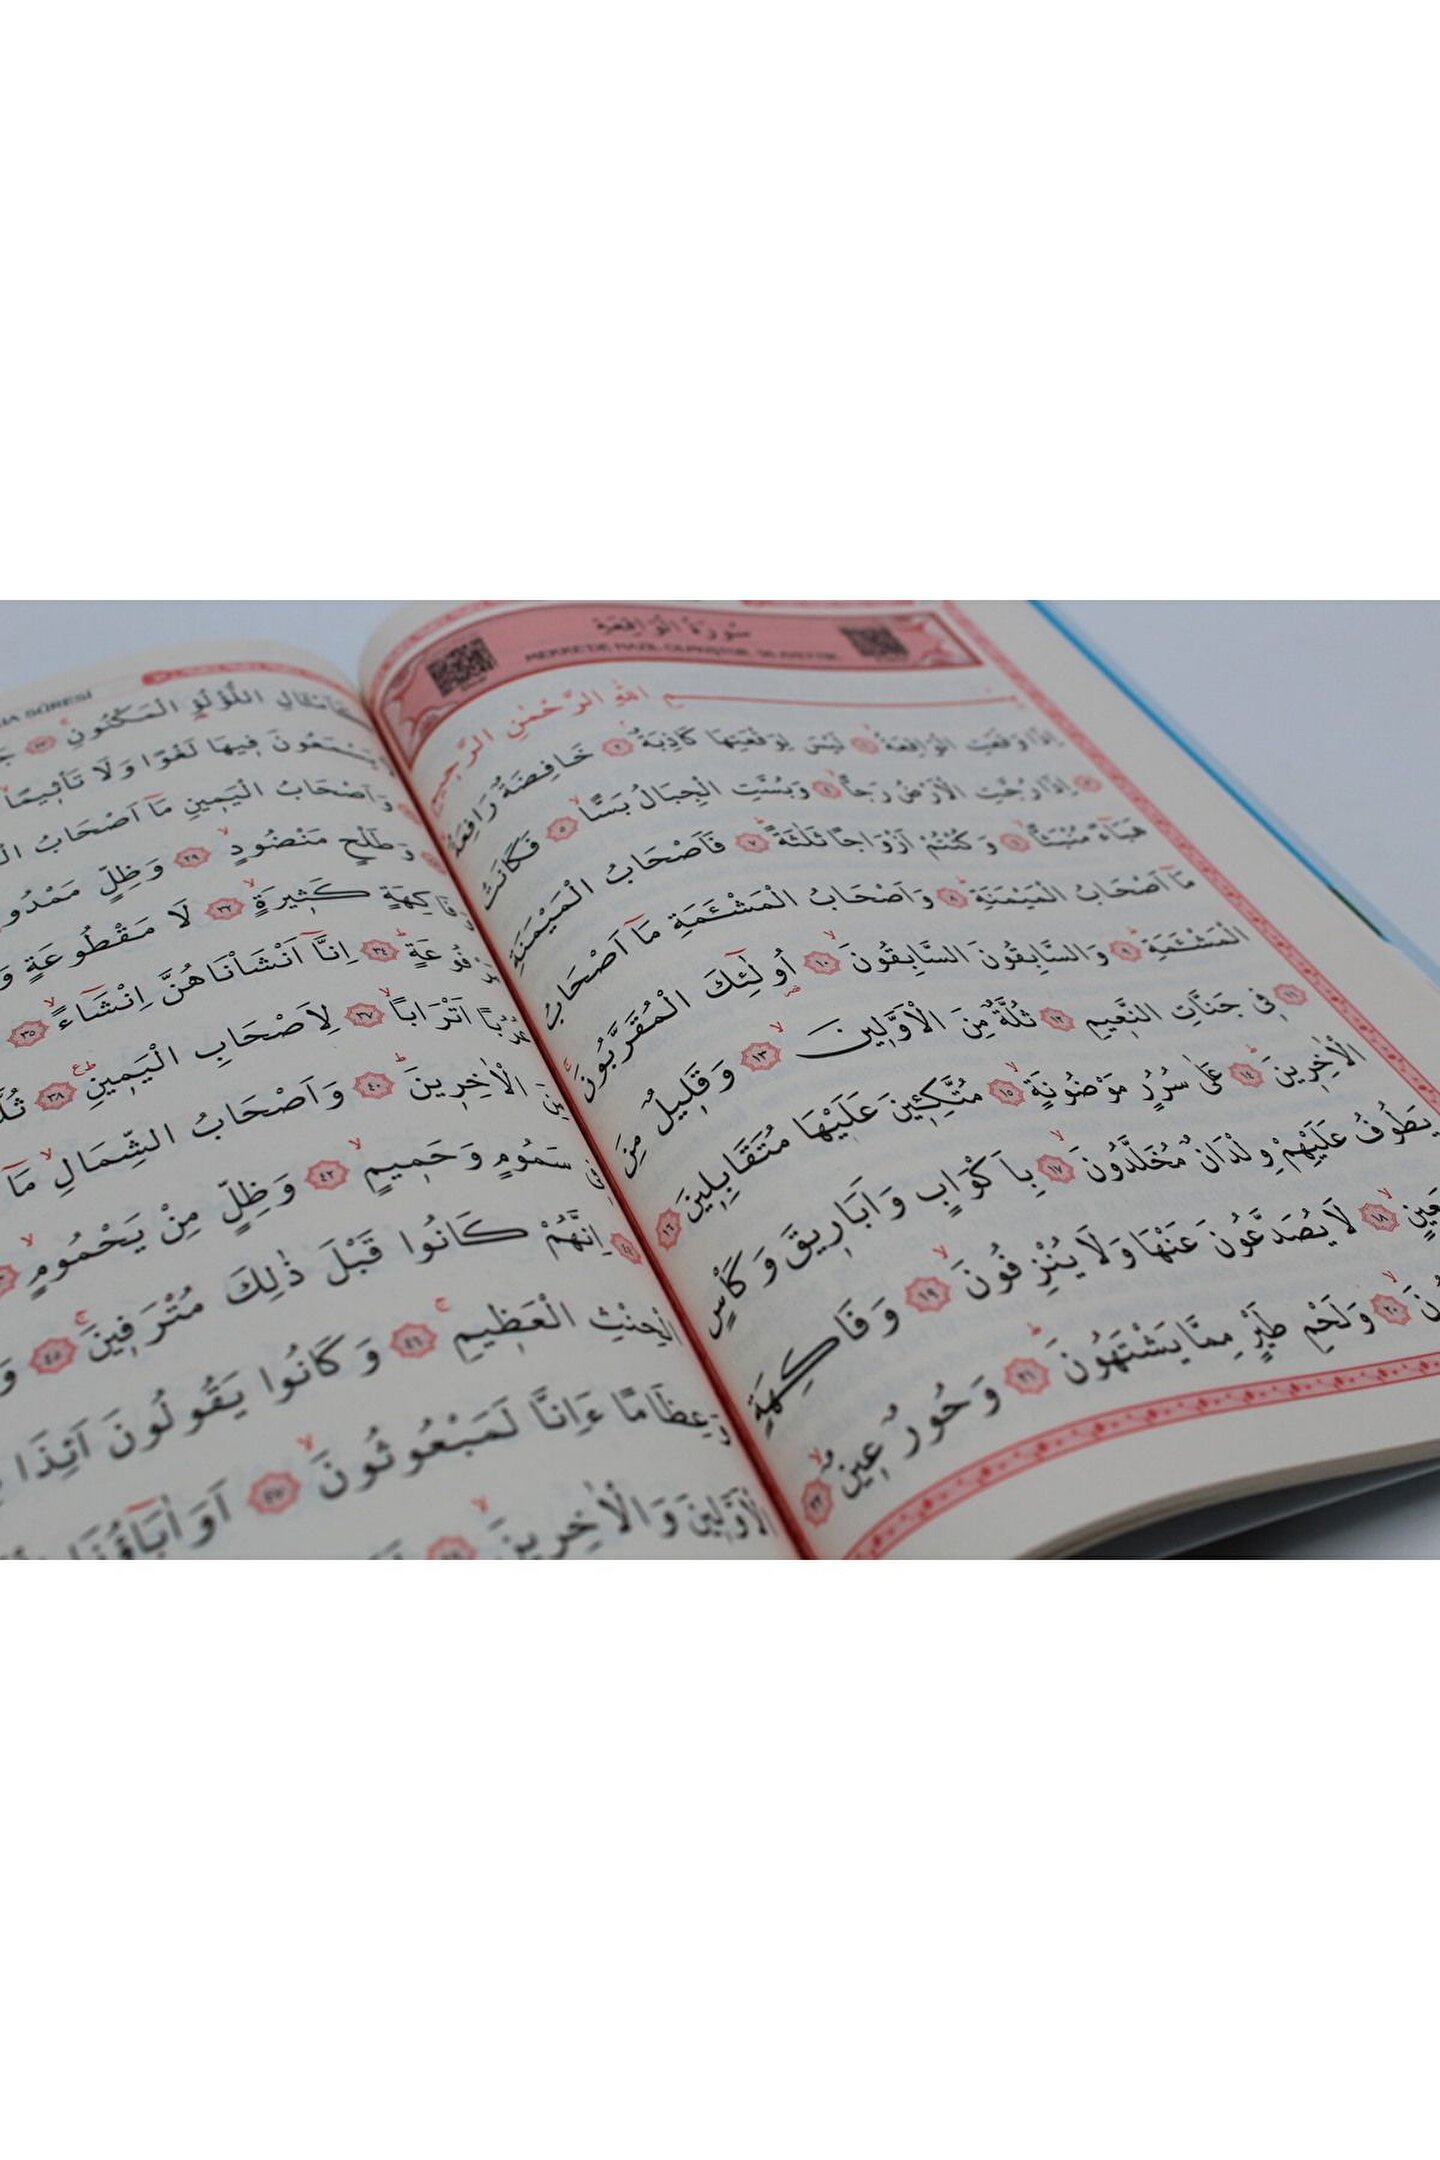 سُورَةُ الْوَاقِعَةِ
اللّٰهِ الرَّحْمٰنِ الرَّحِيمِ
اِذَا وَقَعَتِ الْوَاقِعَةُ ﴿١﴾ لَيْسَ لِوَقْعَتِهَا كَاذِبَةٌ ﴿٢﴾ خَافِضَةٌ رَافِعَةٌ
﴿٣﴾ اِذَا رُجَّتِ الْاَرْضُ رَجًّا ﴿٤﴾ وَبُسَّتِ الْجِبَالُ بَسًّا ﴿٥﴾ فَكَانَتْ
هَبَٓاءً مُنْبَثًّا ﴿٦﴾ وَكُنْتُمْ اَزْوَاجًا ثَلٰثَةً ﴿٧﴾ فَاَصْحَابُ الْمَيْمَنَةِ
مَٓا اَصْحَابُ الْمَيْمَنَةِ ﴿٨﴾ وَاَصْحَابُ الْمَشْـَٔمَةِ مَٓا اَصْحَابُ
الْمَشْـَٔمَةِ ﴿٩﴾ وَالسَّابِقُونَ السَّابِقُونَ ﴿١٠﴾ اُو۬لٰٓئِكَ الْمُقَرَّبُونَ
﴿١١﴾ فِي جَنَّاتِ النَّعِيمِ ﴿١٢﴾ ثُلَّةٌ مِنَ الْاَوَّلِينَ ﴿١٣﴾ وَقَلِيلٌ مِنَ
الْاٰخِرِينَ ﴿١٤﴾ عَلٰى سُرُرٍ مَوْضُونَةٍ ﴿١٥﴾ مُتَّكِـِٔينَ عَلَيْهَا مُتَقَابِلِينَ ﴿١٦﴾
يَطُوفُ عَلَيْهِمْ وِلْدَانٌ مُخَلَّدُونَ ﴿١٧﴾ بِاَكْوَابٍ وَاَبَارِيقَ وَكَأْسٍ
﴿١٨﴾ لَا يُصَدَّعُونَ عَنْهَا وَلَا يُنْزِفُونَ ﴿١٩﴾ وَفَاكِهَةٍ
﴿٢٠﴾ وَلَحْمِ طَيْرٍ مِمَّا يَشْتَهُونَ ﴿٢١﴾ وَحُورٌ عِينٌ ﴿٢٢﴾
SÛRESİ
كَاَمْثَالِ اللُّؤْلُؤِ الْمَكْنُونِ ﴿٢٣﴾
يَسْمَعُونَ فِيهَا لَغْوًا وَلَا تَأْثِيمًا
وَاَصْحَابُ الْيَمِينِ مَٓا اَصْحَابُ
وَطَلْحٍ مَنْضُودٍ ﴿٢٩﴾ وَظِلٍّ مَمْدُودٍ
وَفَاكِهَةٍ كَثِيرَةٍ ﴿٣٢﴾ لَا مَقْطُوعَةٍ
مَرْفُوعَةٍ ﴿٣٤﴾ اِنَّٓا اَنْشَأْنَاهُنَّ اِنْشَٓاءً ﴿٣٥﴾
عُرُبًا اَتْرَابًا ﴿٣٧﴾ لِاَصْحَابِ الْيَمِينِ ﴿٣٨﴾
مِنَ الْاٰخِرِينَ ﴿٤٠﴾ وَاَصْحَابُ الشِّمَالِ مَٓا
فِي سَمُومٍ وَحَمِيمٍ ﴿٤٢﴾ وَظِلٍّ مِنْ يَحْمُومٍ
﴿٤٤﴾ اِنَّهُمْ كَانُوا قَبْلَ ذٰلِكَ مُتْرَفِينَ ﴿٤٥﴾
الْحِنْثِ الْعَظِيمِ ﴿٤٦﴾ وَكَانُوا يَقُولُونَ اَئِذَا
وَعِظَامًا ءَاِنَّا لَمَبْعُوثُونَ ﴿٤٧﴾ اَوَاٰبَٓاؤُنَا
الْاَوَّلِينَ وَالْاٰخِرِينَ